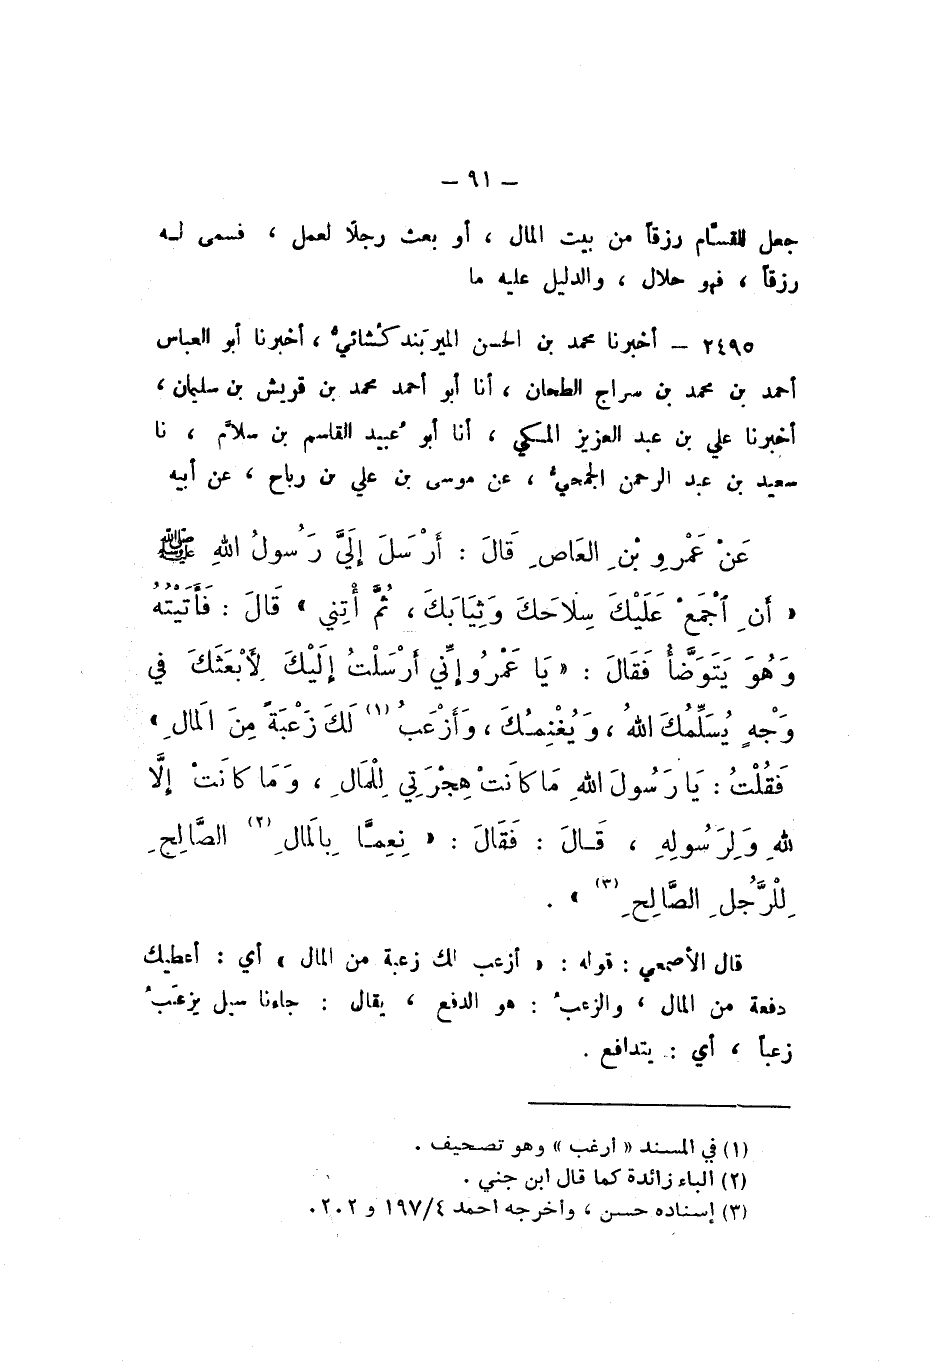 — ٩١ —
جعل للقسّام رزقاً من بيت المال ، أو بعث رجلًا لعمل ، فسمى لـه
رزقاً ، فهو حلال ، والدليل عليه ما
٢٤٩٥ — أخبرنا محمد بن الحسن الميربَند كُشائيُّ ، أخبرنا أبو العباس
أحمد بن محمد بن سراج الطحان ، أنا أبو أحمد محمد بن قريش بن سليمان ،
أخبرنا علي بن عبد العزيز المكي ، أنا أبو عُبيد القاسم بن سلاَّم ، نا
سعيد بن عبد الرحمن الجمحيُّ ، عن موسى بن علي بن رباح ، عن أبيه
عَنْ عَمْرِو بْنِ العَاصِ قَالَ : أَرْسَلَ إِلَيَّ رَسُولُ اللهِ ﷺ
« أَنِ ٱجْمَعْ عَلَيْكَ سِلَاحَكَ وَثِيَابَكَ ، ثُمَّ أْتِني » قَالَ : فَأَتَيْتُهُ
وَهُوَ يَتَوَضَّأُ فَقَالَ : « يَا عَمْرُو إِنِّي أَرْسَلْتُ إِلَيْكَ لِأَبْعَثَكَ في
وَجْهٍ يُسَلِّمُكَ اللهُ ، وَيُغْنِمُكَ ، وَأَزْعَبُ (١) لَكَ زَعْبَةً مِنَ المَالِ »
فَقُلْتُ : يَا رَسُولَ اللهِ مَا كَانَتْ هِجْرَتِي لِلْمَالِ ، وَمَا كَانَتْ إِلَّا
للهِ وَلِرَسُولِهِ ، قَـالَ : فَقَالَ : « نِعِمَّـا بِالمَالِ (٢) الصَّالِحِ
لِلْرَّجُلِ الصَّالِحِ (٣) » .
قال الأصمعي : قوله : « أزعب لك زعبة من المال » أي : أعطيك
دفعة من المال ، والزعبُ : هو الدفع ، يقال : جاءنا سيل يزعَبُ
زعباً ، أي : يتدافع .
(١) في المسند « أرغب » وهو تصحيف .
(٢) الباء زائدة كما قال ابن جني .
(٣) إسناده حسن ، وأخرجه أحمد ١٩٧/٤ و ٢٠٢.